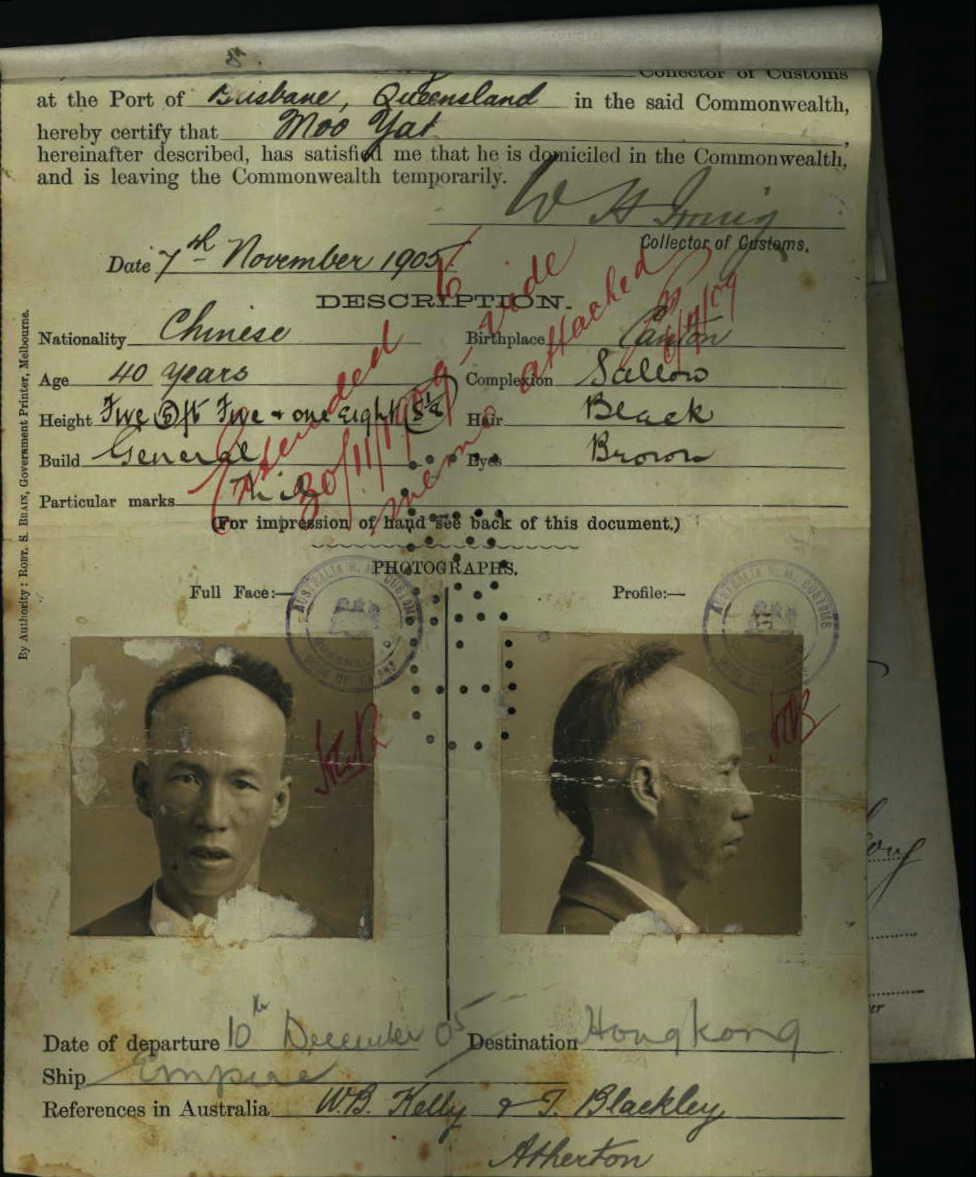 8.
Collector of Customs
at the Port of Brisbane, Queensland in the said Commonwealth,
hereby certify that Moo Yat,
hereinafter described, has satisfied me that he is domiciled in the Commonwealth,
and is leaving the Commonwealth temporarily.
W H Irving
Collector of Customs.
Date 7th November 1905.
DESCRIPTION.
Nationality Chinese
Birthplace Canton
Age 40 years
Complexion Sallow
Height Five (5) ft Five & one eight (5⅛)
Hair Black
Build General
Eyes Brown
Particular marks
(For impression of hand see back of this document.)
Extended to
30/11/1909 - vide
memo attached
6/11/09
PHOTOGRAPHS.
Full Face:—
Profile:—
AUSTRALIA H. M. CUSTOMS
AUSTRALIA H. M. CUSTOMS
By Authority: ROBT. S. BRAIN, Government Printer, Melbourne.
Date of departure 10th December 05
Destination Hongkong
Ship Empire
References in Australia W.B. Kelly & T. Blackley
Atherton